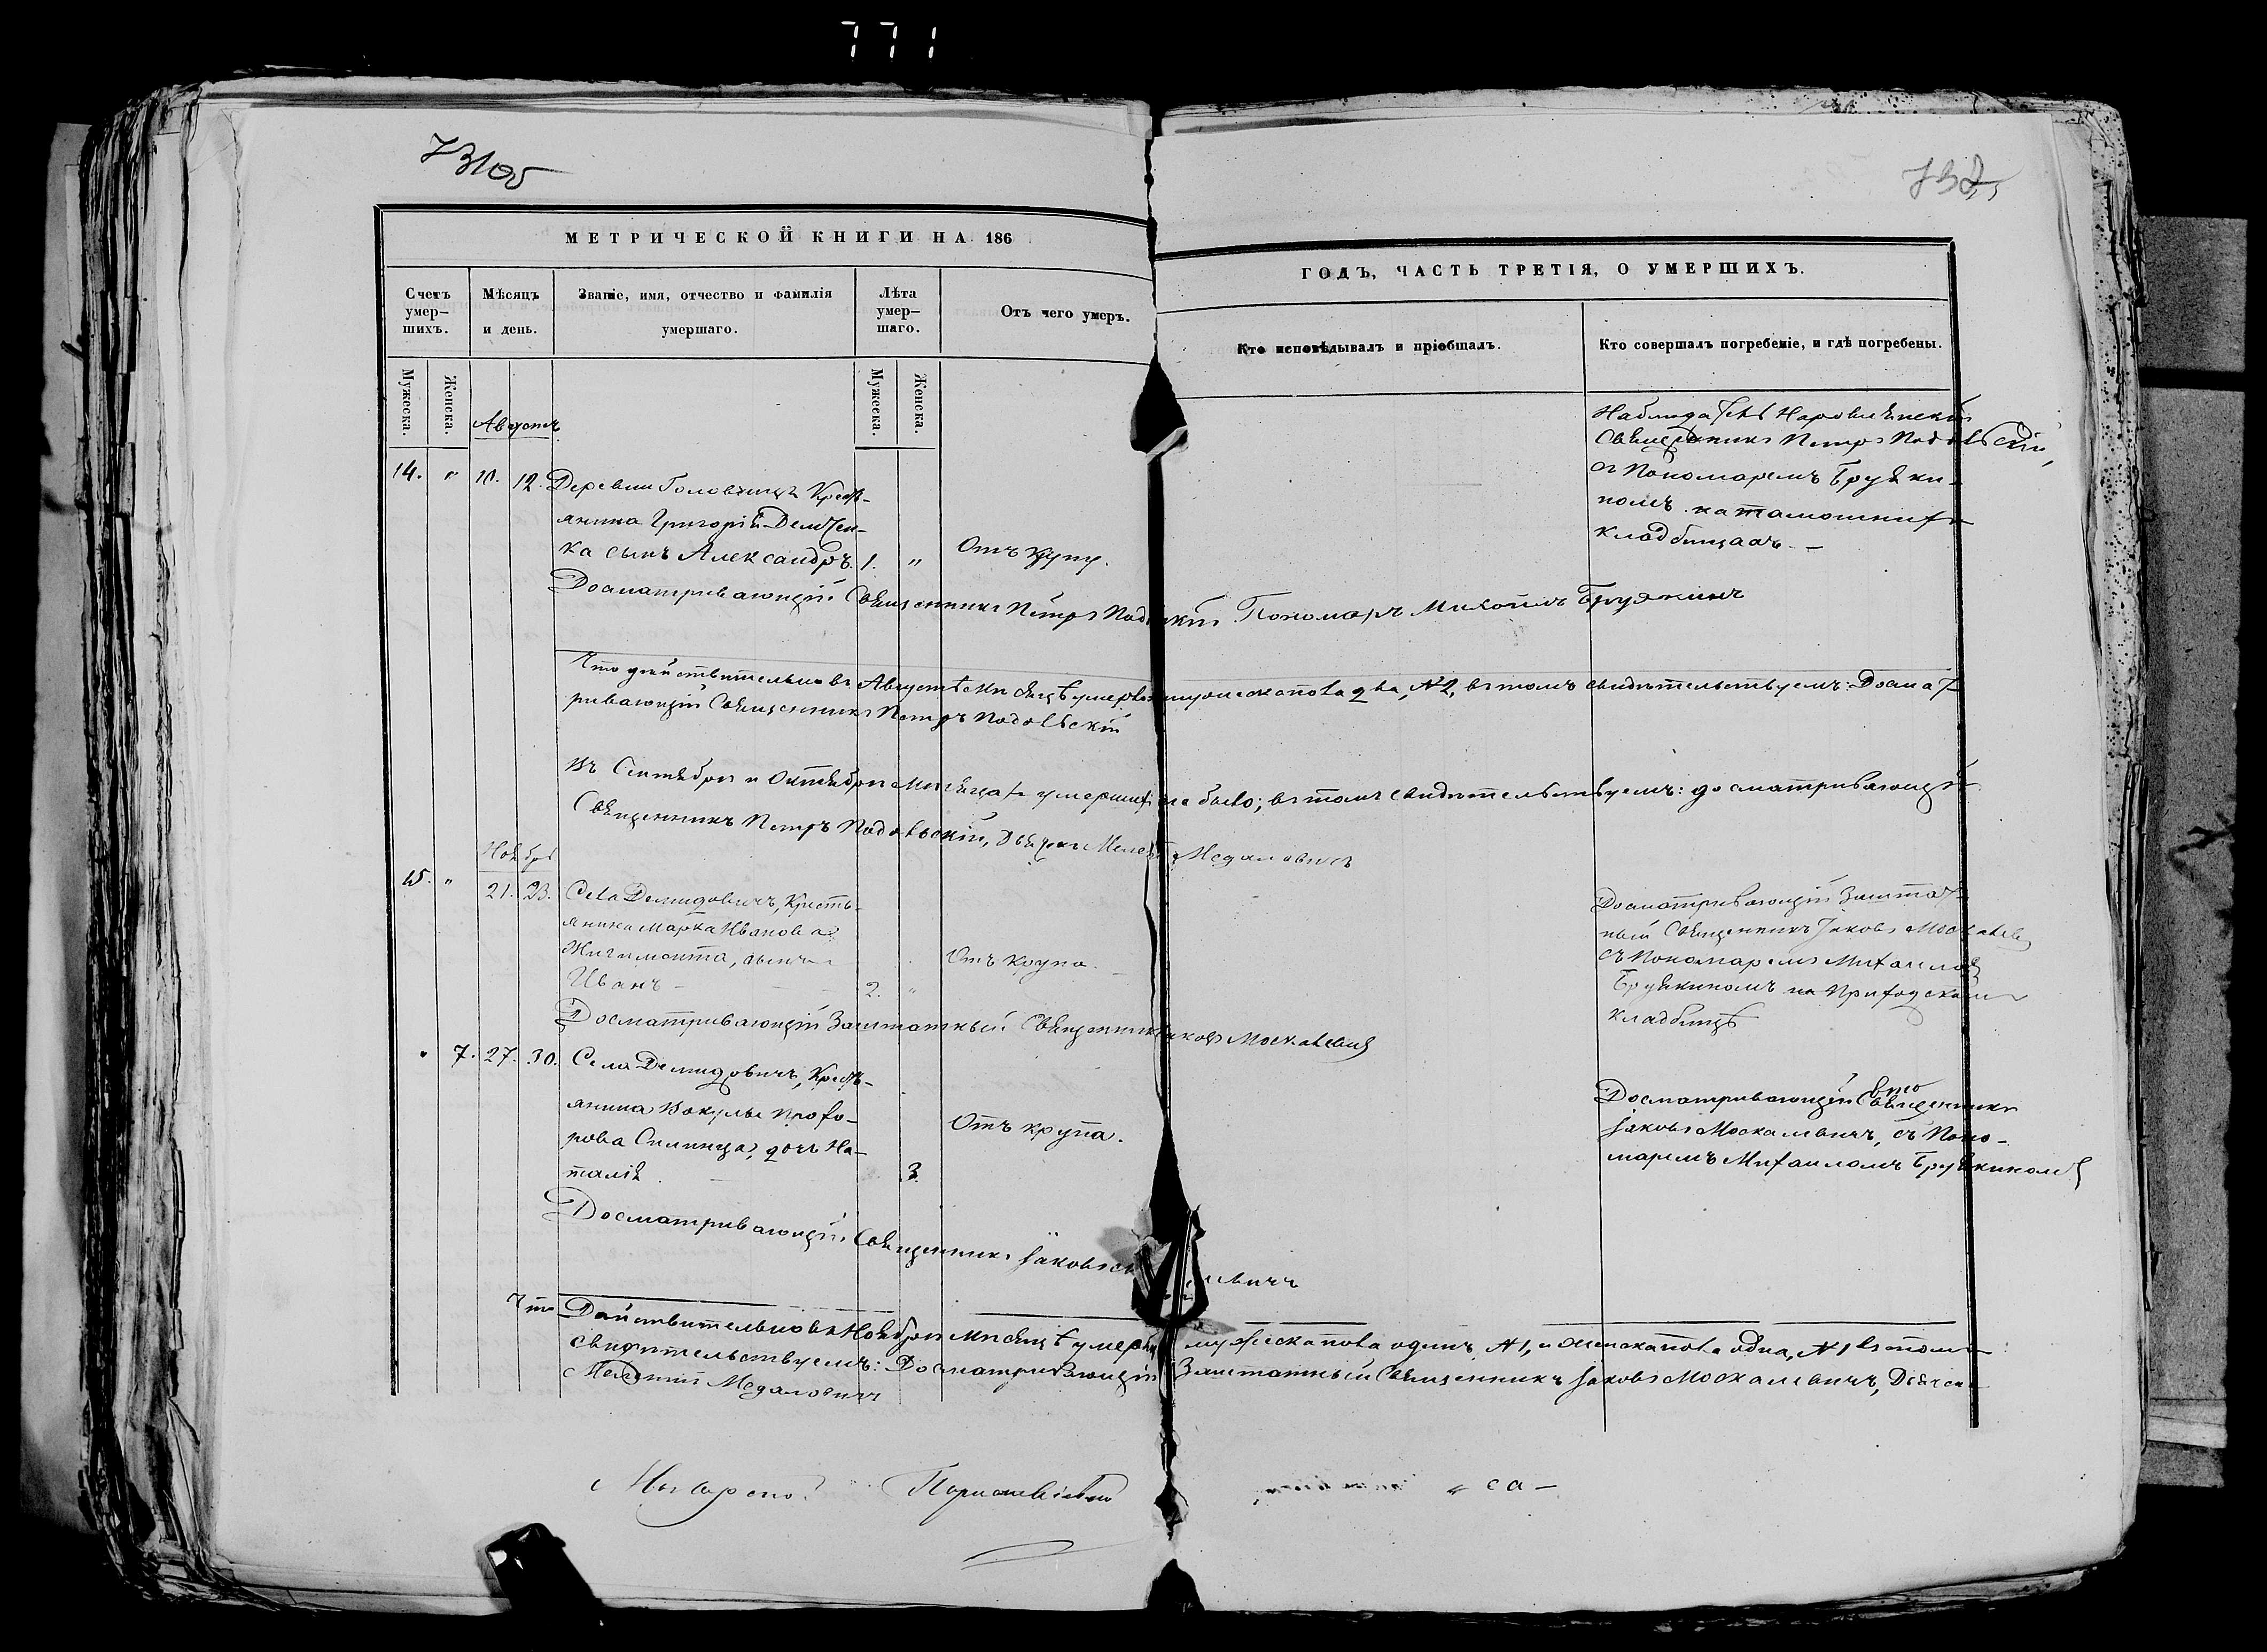 771
731об
732
МЕТРИЧЕСКОЙ КНИГИ НА 186
ГОДЪ, ЧАСТЬ ТРЕТІЯ, О УМЕРШИХЪ.
Счетъ умер–шихъ.
Мѣсяцъ и день.
Званіе, имя, отчество и фамилія умершаго.
Лѣта умер–шаго.
Отъ чего умеръ.
Кто исповѣдывалъ и пріобщалъ.
Кто совершалъ погребеніе, и гдѣ погребены.
Мужеска.
Женска.
Мужеска.
Женска.
Августъ
14. " 10. 12. Деревни Головчицъ Кресть-
янина Григорій Демчен-
ка сынъ Александръ. 1. " Отъ крупу.
Священникъ Петръ Подольскій,
съ Пономаремъ Бруякин-
омъ на тамошнихъ
кладбищахъ. –
Досматривающій Священникъ Петръ Подольскій Пономарь Михаилъ Бруякинъ
Что дѣйствительно въ Августѣ мѣсяцѣ умерло мужеска пола два, №2, въ томъ свидѣтельствуемъ: Досмат-
ривающій Священникъ Петръ Подольскій
Въ Сентябрѣ и Октябрѣ мѣсяцахъ умершихъ не было; въ томъ свидѣтельствуемъ: досматривающій
Священникъ Петръ Подольскій, Дьячекъ Мелетій Медаловичъ
Ноябрь
15. " 21. 23. Села Демидовичъ, Кресть-
янина Марка Иванова
Жигимонта, сынъ
Иванъ – 2. " Отъ крупа.
Досматривающій Заштат-
ный Священникъ Іаковъ Москалев
съ Пономаремъ Михаиломъ
Бруякиномъ на Приходскомъ
кладбищѣ
Досматривающій Заштатный Священникъ Іаковъ Москалевичъ
" 7. 27. 30. Села Демидовичъ, Кресть-
янина Вакулы Прохо-
рова Силинца, дочь На-
талія. 3. Отъ крупа.
Досматривающій Священникъ
Іаковъ Москалевичъ, съ Поно-
маремъ Михаиломъ Бруякиномъ
Досматривающій Священникъ Іаковъ Москалевичъ
Что Дѣйствительно въ Ноябрѣ мѣсяцѣ умерло мужеска пола одинъ, №1, и женска пола одна, №1 въ томъ
свидѣтельствуемъ: Досматривающій Заштатный Священникъ Іаковъ Москалевичъ, Дьячекъ
Мелетій Медаловичъ